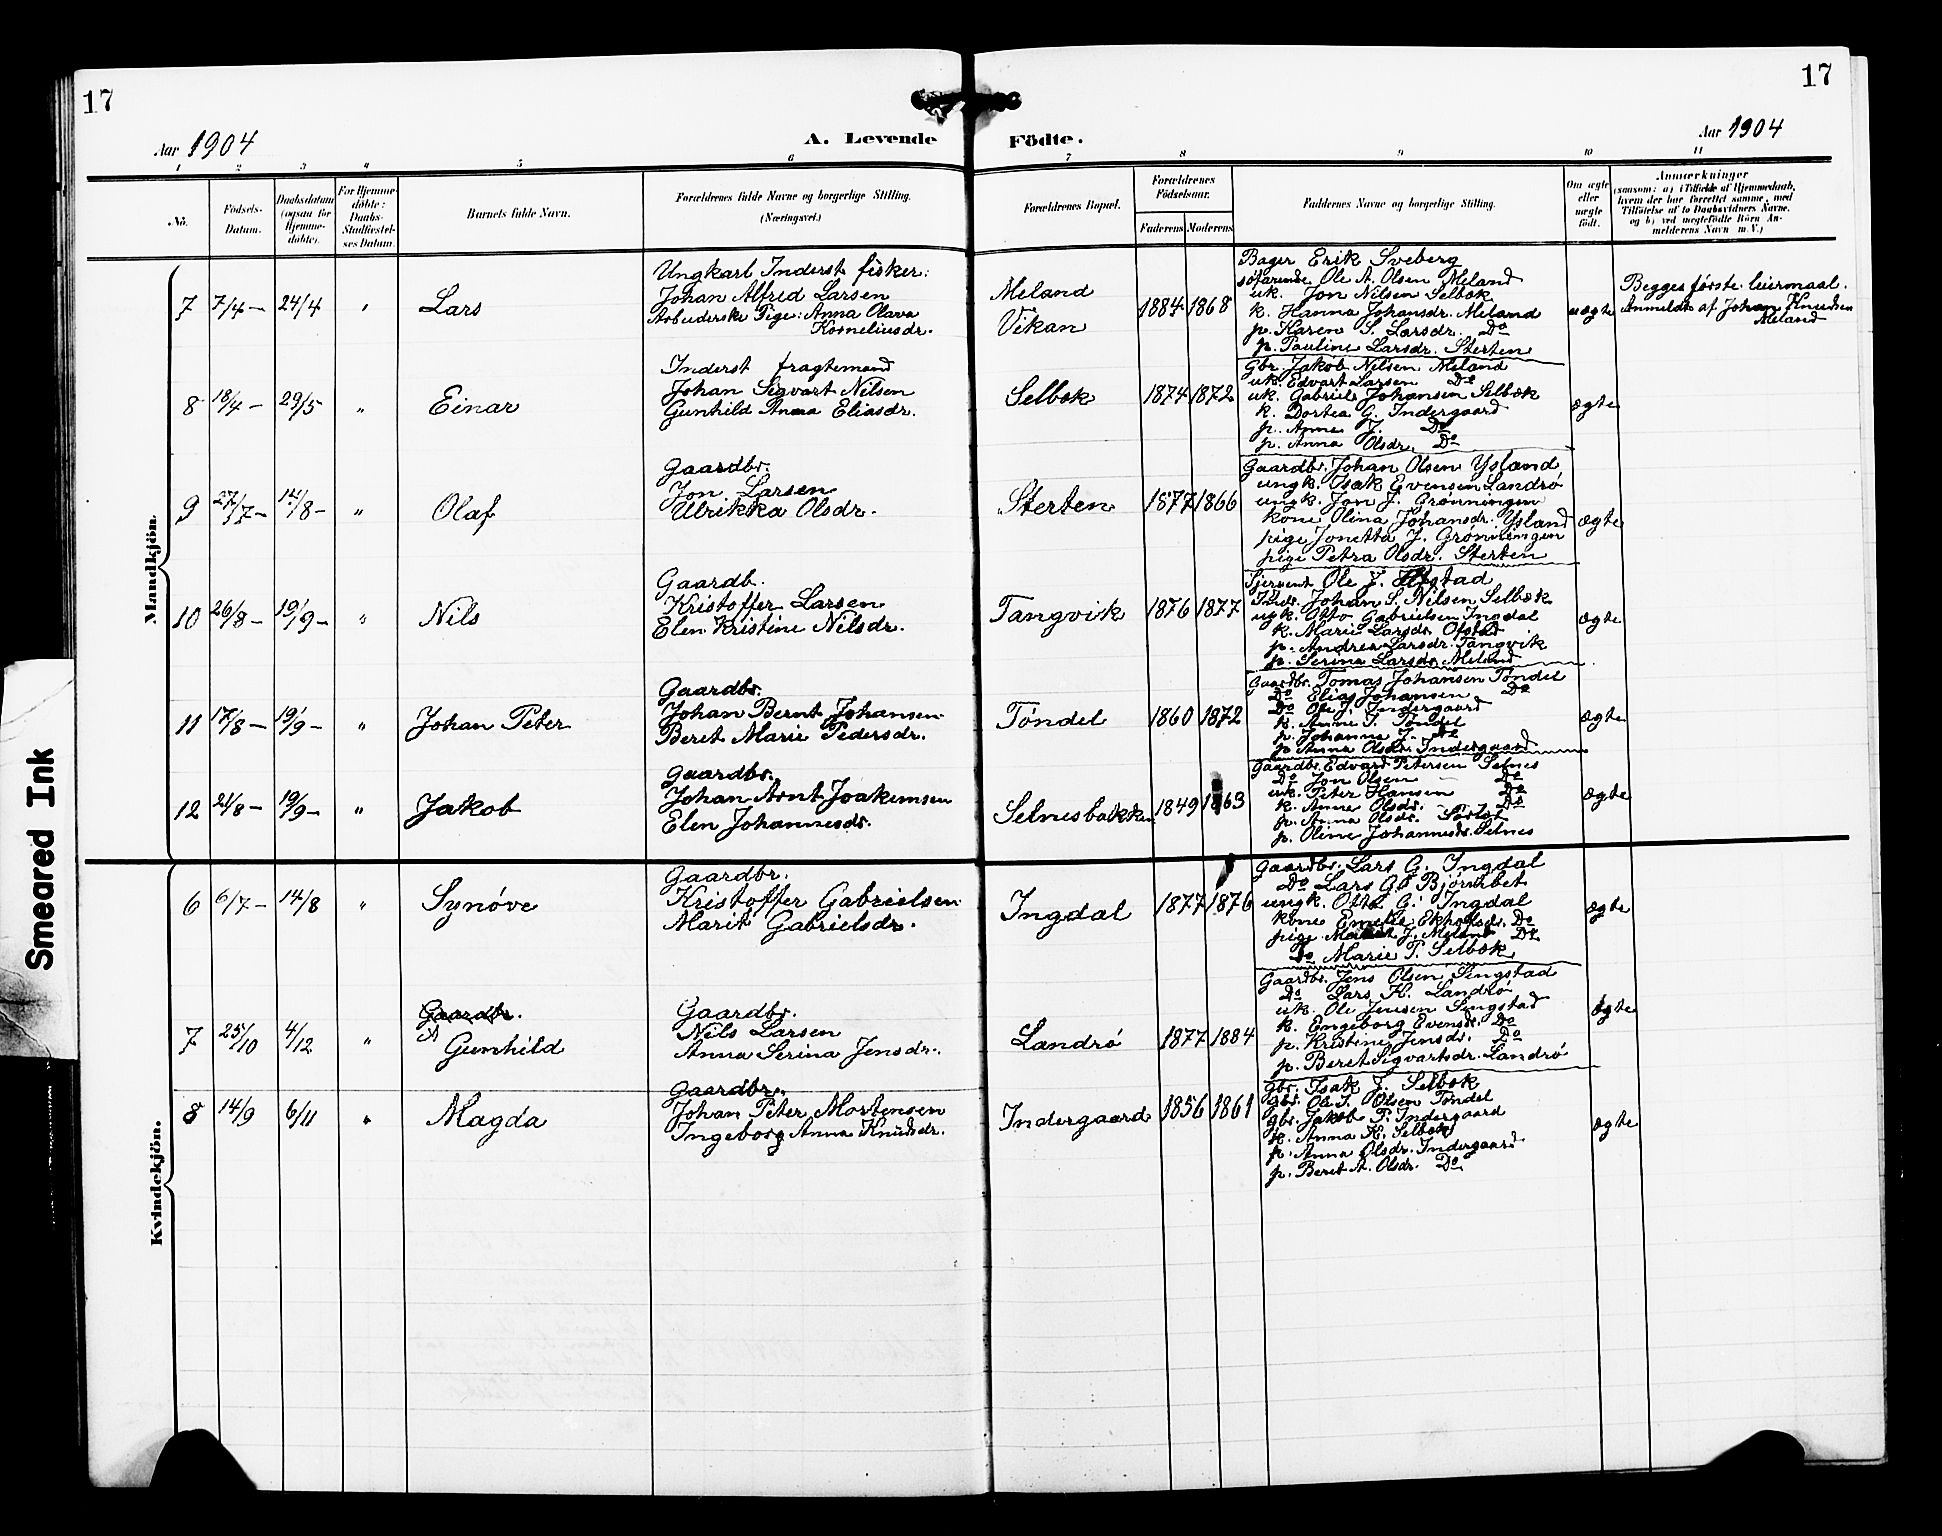 17
17
Aar 1904
A. Levende Födte.
Aar 1904
1 2 3 4 5 6 7 8 9 10 11
No.
Födsels-Datum.
Daabsdatum (ogsaa for Hjemme-döbte).
For Hjemme-döbte: Daabs-Stadfæstel-ses Datum.
Barnets fulde Navn.
Forældrenes fulde Navne og borgerlige Stilling.
(Næringsvei.)
Forældrenes Bopæl.
Forældrenes Födselsaar.
Faderens Moderens
Faddernes Navne og borgerlige Stilling.
Om ægte eller uægte födt.
Anmærkninger
(saasom: a) i Tilfælde af Hjemmedaab,
hvem der har forrettet samme, med
Tilföielse af to Daabsvidners Navne.
og b) ved uegtefödte Börn An-
melderens Navn m. V.)
Mandkjön.
7 7/4 – 24/4 " Lars
Ungkarl Inderst fisker:
Johan Alfred Larsen
Arbeiderske Pige: Anna Olava
Korneliusdr.
Meland
Vikan
1884 1868
Bager Erik Sveberg
söfarende Ole A. Olsen Meland
uk. Jon Nilsen Selbæk
k. Hanna Johansdr. Meland
p. Karen S. Larsdr. Do
p. Pauline Larsdr. Sterten
uægte
Begges første leiermaal.
Anmeldt af Johan Knudsen
Meland
8 18/4 – 29/5 " Einar
Inderst fragtemand
Johan Sigvart Nilsen
Gunhild Anna Eliasdr.
Selbæk
1874 1872
Gbr. Jakob Nilsen Meland
uk. Edvart Larsen Do
uk. Gabriel Johansen Selbæk
k. Dortea G. Indergaard
p. Anne J. Do
p. Anna Olsdr. Do
ægte
9 27/7 – 14/8 – " Olaf
Gaardbr.
Jon Larsen
Ulrikka Olsdr.
Sterten
1877 1866
Gaardbr. Johan Olsen Ysland
ungk. Isak Evensen Landrø
ungk. Jon J. Grønningen
kone Olina Johansdr. Ysland
pige Jonetta J. Grønningen
pige Petra Olsdr. Sterten
ægte
10 26/8 – 19/9 – " Nils
Gaardb.
Kristoffer Larsen
Elen Kristine Nilsdr.
Tangvik
1876 1877
Ole J.
Johan S. Nilsen Selbæk
ugk. Otto Gabrielsen Ingdal
k. Marie Larsdr. Ofstad
p. Andrea Larsdr. Tangvik
p. Serina Larsdr. Meland
ægte
11 17/8 – 19/9 – " Johan Peter
Gaardbr.
Johan Bernt Johansen
Beret Marie Pedersdr.
Tøndel
1860 1872
Gaardbr. Tomas Johansen Tøndel
Do Elias Johansen Do
Do Ole J. Indergaard
k. Anne J. Tøndel
p. Johanna J. Do
p. Anna Olsdr. Indergaard
ægte
12 21/8 – 19/9 – " Jakob
Gaardbr.
Johan Arnt Joakimsen
Elen Johannesdr.
Selnesbakken
1849 1863
Gaardbr. Edvard Petersen Selnes
Do Jon Olsen Do
uk. Peter Hansen Do
k. Anna Olsdr. Do
p. Anna Olsdr.
p. Oline Johannesdr. Selnes
ægte
Kvindekjön.
6 6/7 – 14/8 " Synøve
Gaardbr.
Kristoffer Gabrielsen
Marit Gabrielsdr.
Ingdal
1877 1876
Gaardbr. Lars G. Ingdal
Do Lars Gb
ungk. Otto G. Ingdal
kone Do
pige J. Meland Do
Do Marie P. Selbæk
ægte
7 25/10 4/12 "
Gaardbr.
Gunhild
Gaardbr.
Nils Larsen
Anna Serina Jensdr.
Landrø
1877 1884
Gaardbr. Jens Olsen Singstad
Do Lars K. Landrø
uk. Ole Jensen Singstad
k. Engeborg Evensdr. Do
p. Kristine Jensdr. Do
p. Beret Sigvartsdr. Landrø
ægte
8 14/9 6/11 " Magda
Gaardbr.
Johan Peter Mortensen
Ingeborg Anna Knudsdr.
Indergaard
1856 1861
gbr. Isak J. Selbæk
gbr. Ole J. Olsen Tøndel
gbr. Jakob P. Indergaard
k. Anna K. Selbæk
p. Anna Olsdr. Indergaard
p. Beret A. Olsdr. Do
ægte
Smeared Ink